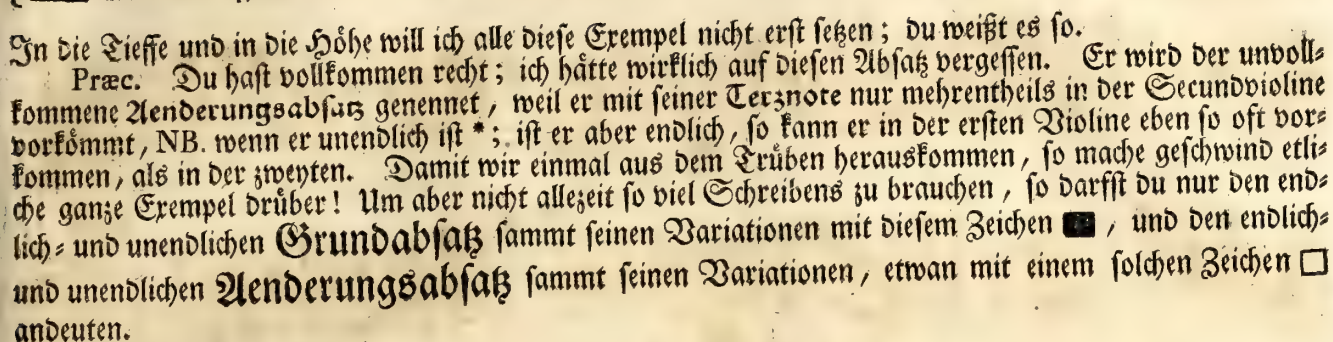 In die Tieffe und in die Höhe will ich alle diese Exempel nicht erst setzen; du weißt es so.
Præc. Du hast vollkommen recht; ich hätte wirklich auf diesen Absatz vergessen. Er wird der unvoll=
kommene Aenderungsabsatz genennet, weil er mit seiner Terznote nur mehrentheils in der Secundvioline
vorkömmt, NB. wenn er unendlich ist *; ist er aber endlich, so kann er in der ersten Violine eben so oft vor=
kommen, als in der zweyten. Damit wir einmal aus dem Trüben herauskommen, so mache geschwind etli=
che ganze Exempel drüber! Um aber nicht allezeit so viel Schreibens zu brauchen, so darfst du nur den end=
lich= und unendlichen Grundabsatz sammt seinen Variationen mit diesem Zeichen ■, und den endlich=
und unendlichen Aenderungsabsatz sammt seinen Variationen, etwan mit einem solchen Zeichen □
andeuten.